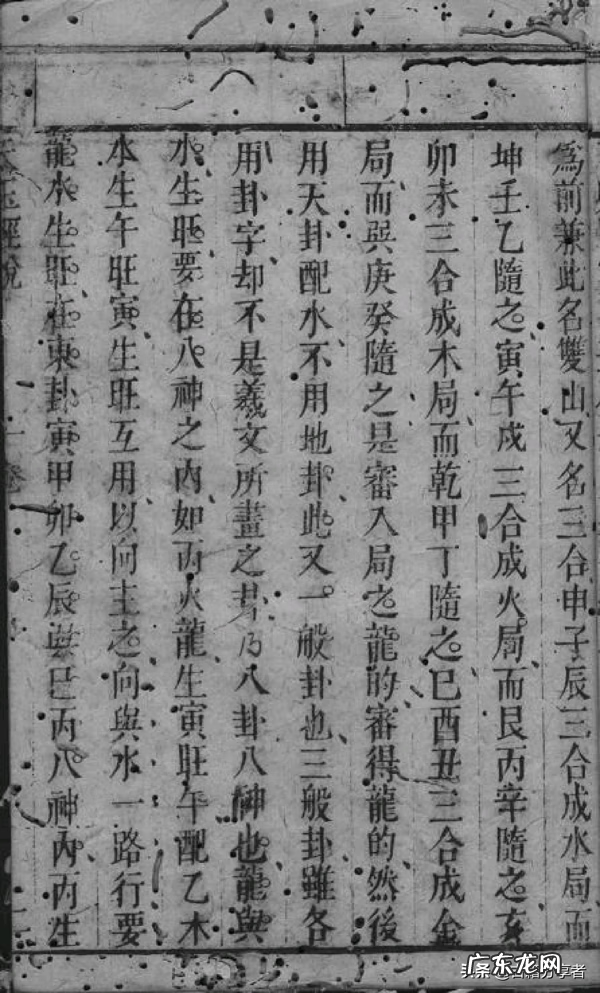 為前兼此名雙山又名三合申子辰三合成水局而
坤壬乙隨之寅午戌三合成火局而艮丙辛隨之亥
卯未三合成木局而乾甲丁隨之巳酉丑三合成金
局而巽庚癸隨之是審入局之龍的審得龍的然後
用天卦配水不用地卦此又一般卦也三般卦雖各
用卦字却不是羲文所畫之卦乃八卦八神也龍與
水生旺要在八神之內如丙火龍生寅旺午配乙木
水生午旺寅生旺互用以向主之向與水一路行要
龍水生旺在東卦寅甲卯乙辰巽巳丙八神內丙生
天玉經說 一卷
广东龙网
头条